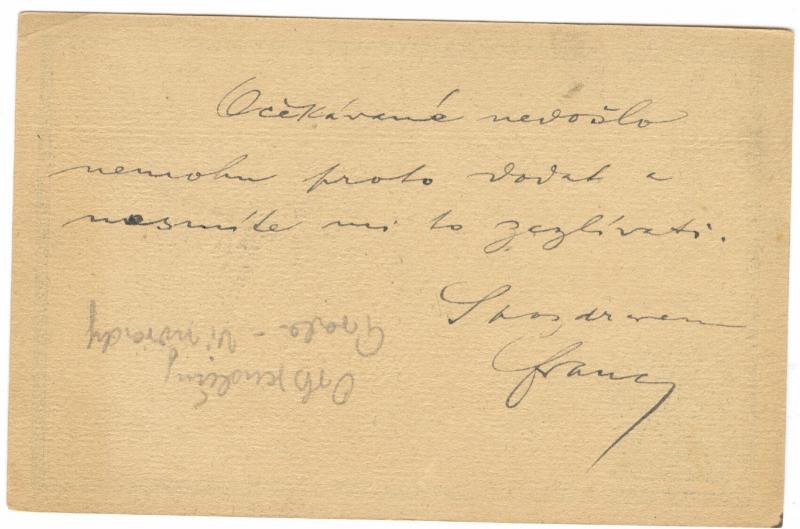 Očekávané nedošlo
nemohu proto dodat a
nesmíte mi to zazlívati.
S pozdravem
Franc
Praha - Vinohrady